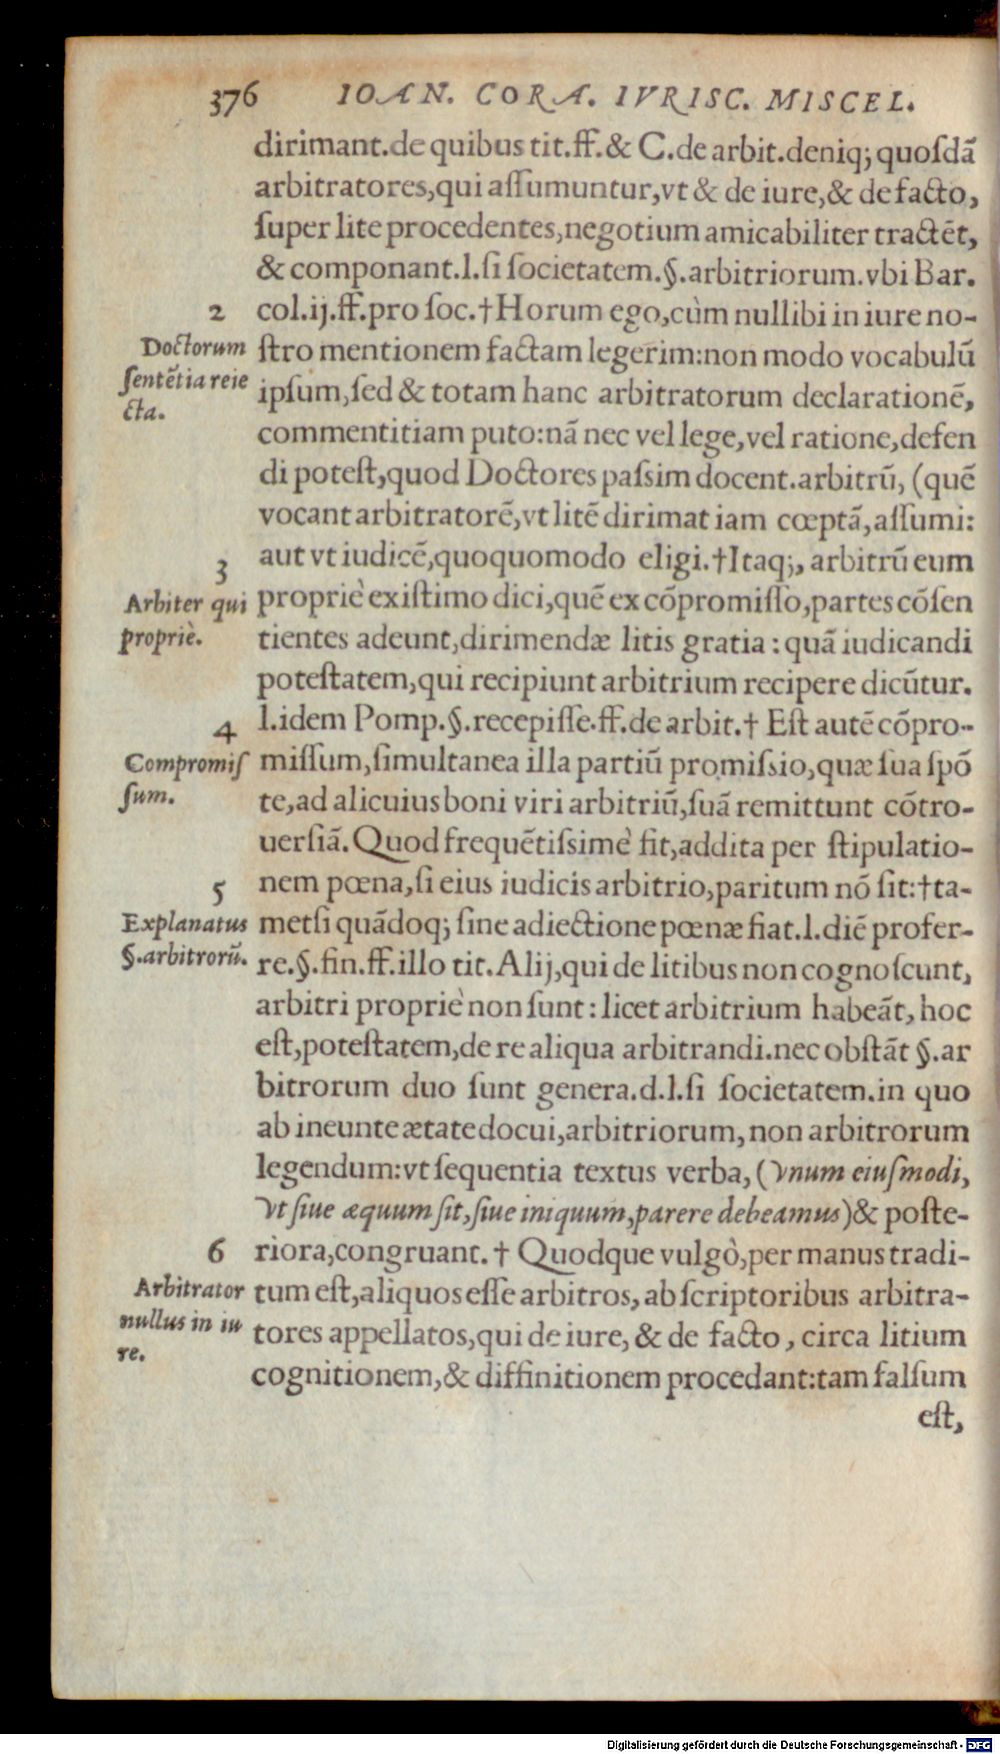 376 IOAN. CORA. IVRISC. MISCEL.
dirimant.de quibus tit.ff.& C.de arbit.deniq; quoſdã
arbitratores,qui aſſumuntur,vt & de iure,& de facto,
ſuper lite procedentes,negotium amicabiliter tractẽt,
& componant.l.ſi ſocietatem.§.arbitriorum.vbi Bar.
2 col.ij.ff.pro ſoc.†Horum ego,cùm nullibi in iure no-
Doctorum
ſentẽtia reie
cta.
ſtro mentionem factam legerim:non modo vocabulũ
ipſum,ſed & totam hanc arbitratorum declarationẽ,
commentitiam puto:nã nec vel lege,vel ratione,defen
di poteſt,quod Doctores paſsim docent.arbitrũ, (quẽ
vocant arbitratorẽ,vt litẽ dirimat iam cœptã,aſſumi:
3 aut vt iudicẽ,quoquomodo eligi.†Itaq;, arbitrũ eum
Arbiter qui
propriè.
propriè exiſtimo dici,quẽ ex cõpromiſſo,partes cõſen
tientes adeunt,dirimendæ litis gratia : quã iudicandi
poteſtatem,qui recipiunt arbitrium recipere dicũtur.
4 l.idem Pomp.§.recepiſſe.ff.de arbit.† Eſt autẽ cõpro-
Compromiſ
ſum.
miſſum,ſimultanea illa partiũ promiſsio,quæ ſua ſpõ
te,ad alicuius boni viri arbitriũ,ſuã remittunt cõtro-
uerſiã. Quod frequẽtiſsimè fit,addita per ſtipulatio-
5 nem pœna,ſi eius iudicis arbitrio,paritum nõ ſit:†ta-
Explanatus
§.arbitrorũ.
metſi quãdoq; ſine adiectione pœnæ fiat.l.diẽ profer-
re.§.fin.ff.illo tit. Alij,qui de litibus non cognoſcunt,
arbitri propriè non ſunt : licet arbitrium habeãt, hoc
eſt,poteſtatem,de re aliqua arbitrandi.nec obſtãt §.ar
bitrorum duo ſunt genera.d.l.ſi ſocietatem.in quo
ab ineunte ætate docui,arbitriorum, non arbitrorum
legendum:vt ſequentia textus verba, (vnum eiuſmodi,
vt ſiue æquum ſit,ſiue iniquum,parere debeamus)& poſte-
6 riora,congruant. † Quodque vulgò,per manus tradi-
Arbitrator
nullus in iu
re.
tum eſt,aliquos eſſe arbitros, ab ſcriptoribus arbitra-
tores appellatos,qui de iure, & de facto, circa litium
cognitionem,& diffinitionem procedant:tam falſum
eſt,
Digitalisierung gefördert durch die Deutsche Forschungsgemeinschaft - DFG